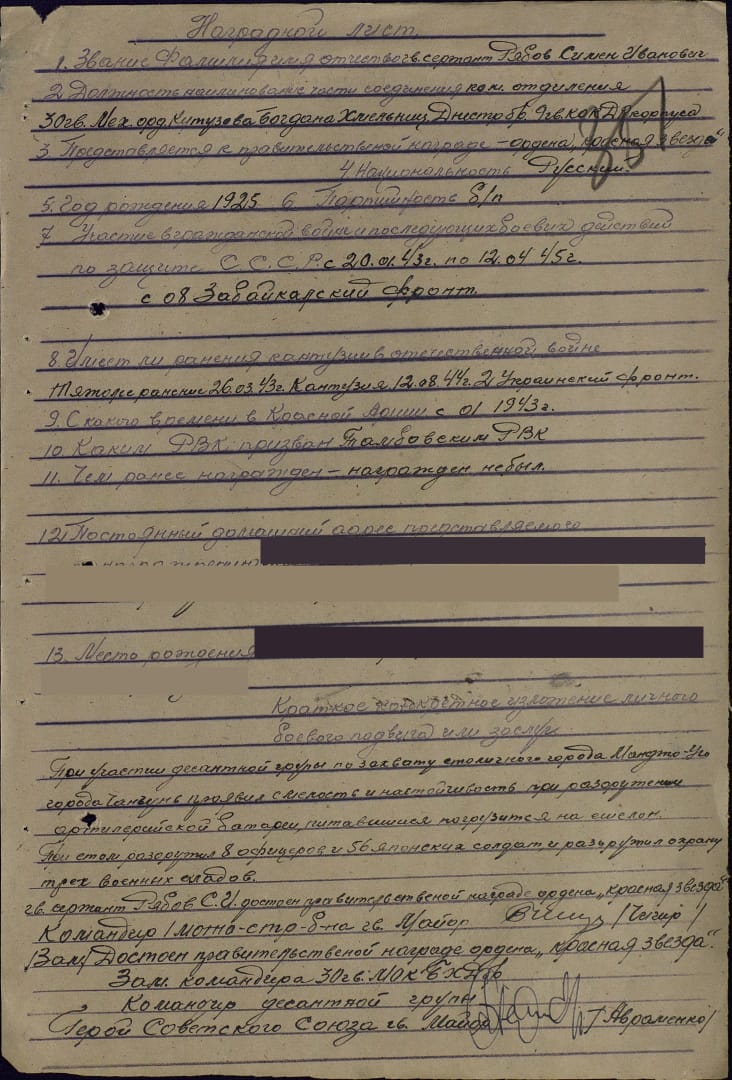 Наградной лист.
1. Звание Фамилия имя отчество гв. сержант Рябов Симен Иванович
2 Должность наименование части соединения ком. отдиления
30 гв. Мех. орд Кутузова Богдана Хмельниц. Днестр бр. 9 гв. к орк Д корпуса
3. Представляется к правительственной награде – ордена, красная звезда"
4 Национальность Русский.
5. Год рождения 1925 6. Партийность б/п
7 Участие в гражданской войне и последующих боевых действий
по защите С.С.С.Р. с 20.01.43г. по 12.04 45г.
с 08 Забайкарский фронт.
8. Имеет ли ранения кантузии в отечественной войне
Тяжолое ранение 26.03.43г. Кантузия 12.08.44г. 2 Украинский фронт.
9. С какого времени в Красной Армии с 01 1943г.
10 Каким РВК призван Тамбовским РВК
11. Чем ранее награжден – награжден небыл.
12. Постоянный домашний адрес представляемого
13. Место рождения
Краткое конкретное изложение личного
боевого подвига или заслуг
При участии десантной групы по захвату столичного города Манджо-Го
города Чанчунь проявил смелость и настойчивость при разоружении
артилерийской батареи, питавшиися погрузится на ешелон.
При етом разоружил 8 офицеров и 56 японских солдат и разоружил охрану
трех военных складов.
гв. сержант Рябов С.И. достоен правительственой награде ордена „красная звезда"
Командир /мото-стр-б-на гв. Майор /Чигир/
/Зам/ Достоен правительственой награде ордена „красная звезда".
Зам. командира 30 гв. МОК БХДбр
Командир десантной групы
Герой Советского Союза гв. Майор /Авраменко/